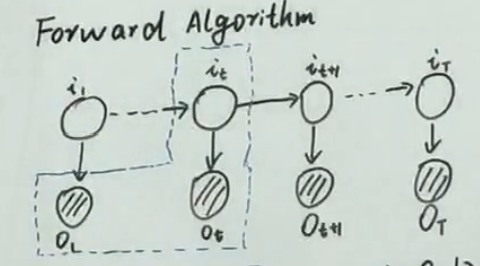 Forward Algorithm
i₁ iₜ iₜ₊₁ i_T
O₁ Oₜ Oₜ₊₁ O_T